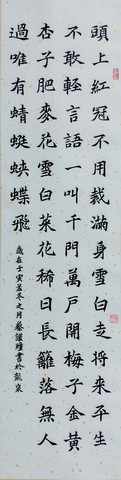 頭上紅冠不用裁滿身雪白走將来平生
不敢輕言語一叫千門萬戶開梅子金黃
杏子肥麥花雪白菜花稀日長籬落無人
過唯有蜻蜓蛺蝶飛
歲在壬寅孟冬之月蔡書於龍泉